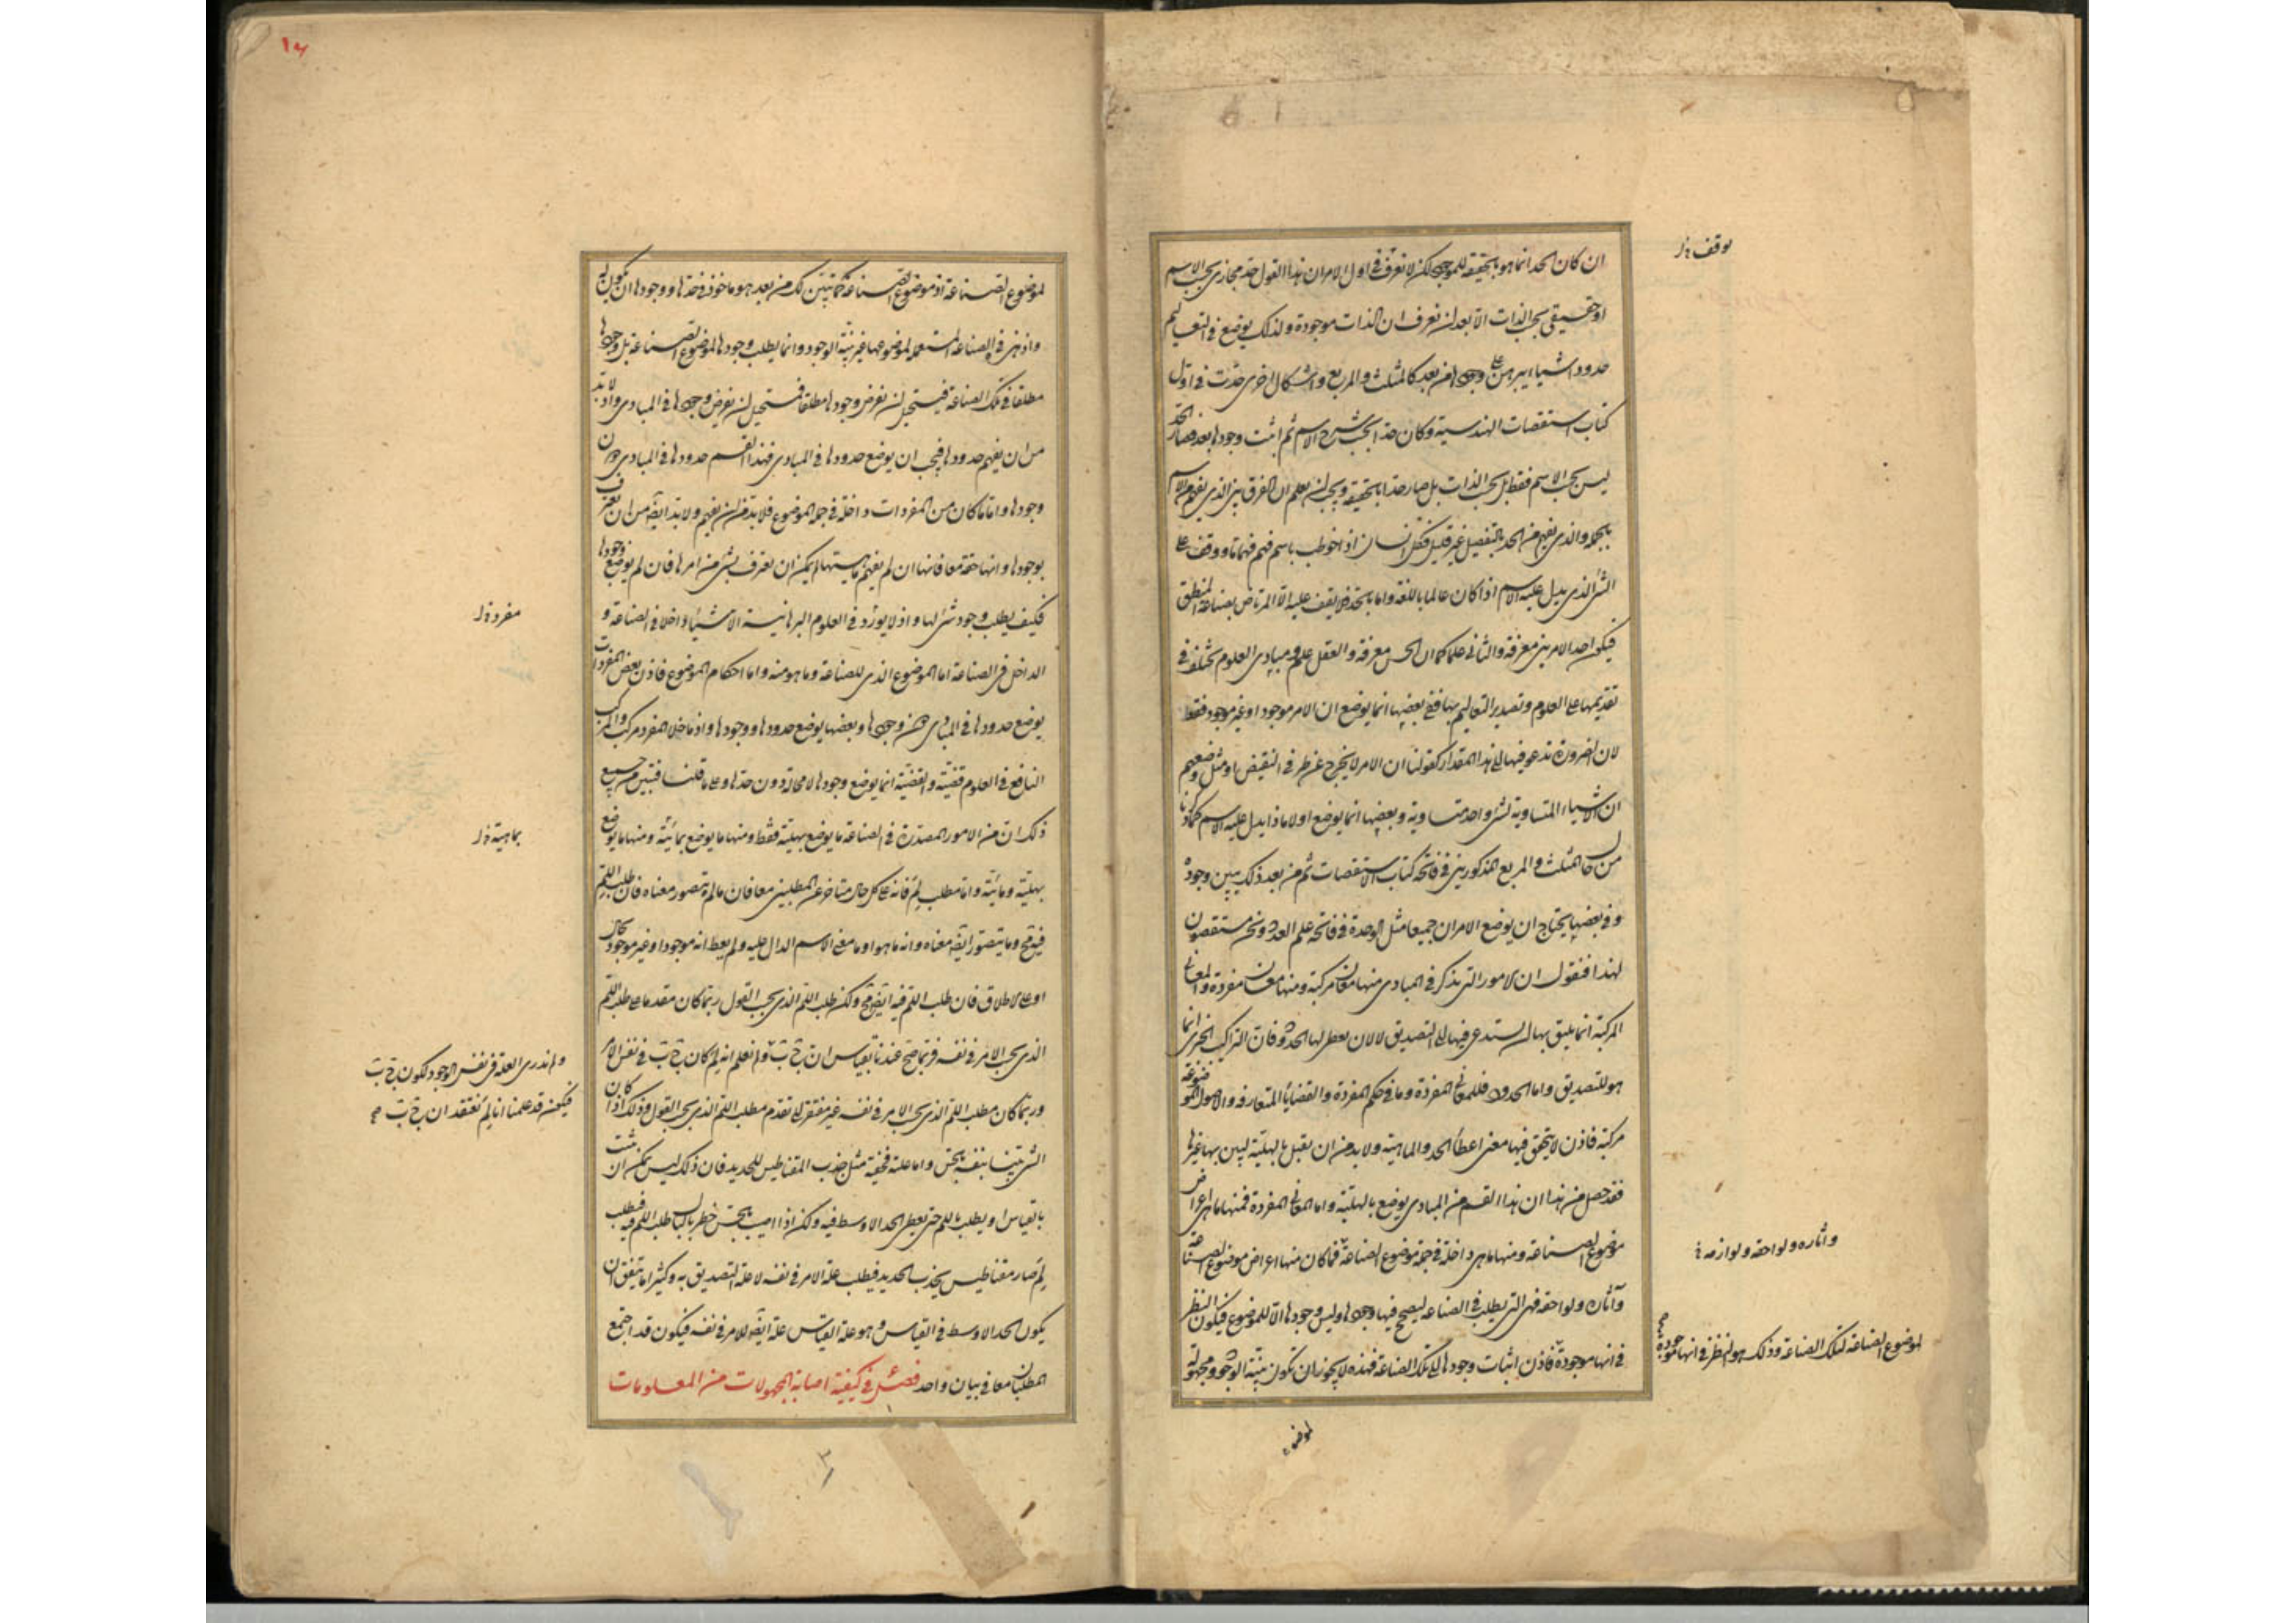 ان كان الحد انما هو بالحقيقة للموجود لكن لا نعرف فى اول الامر ان هذا القول حد مجازى بحسب الاسم
او حقيقى بحسب الذات الا بعد ان نعرف ان الذات موجودة ولذلك يوضع فى التعاليم
حدود اشياء يبرهن على وجودها من بعد كالمثلث والمربع واشكال اخرى حدت فى اول
كتاب اسـتقصات الهندسية وكان حدا بحسب شرح الاسم ثم اثبت وجودها بعد فصار الحد
ليس بحسب الاسم فقط بل بحسب الذات بل صار حدا بالحقيقة ويجب ان يعلم ان الفرق بين الذى يفهم من الاسم
بالجملة والذى يفهم من الحد بالتفصيل غير قليل فكل انسان اذا خوطب باسم فهم فهما ما ووقف على
الشئ الذى يدل عليه الاسم اذا كان عالما باللغة واما بالحد فلا يقف عليه الا المرتاض بصناعة المنطق
فيكون احد الامرين معرفة والثانى علما كما ان الحس معرفة والعقل علم ومبادى العلوم تختلف فى
تقديمها على العلوم وتصدير التعاليم بها ففى بعضها انما يوضع ان الامر موجود او غير موجود فقط
لان الضرورة تدعو فيها الى هذا المقدار كقولنا ان الامر لا يخرج عن طرفى النقيض او مثل وضعهم
ان الاشياء المتساوية لشئ واحد متساوية وبعضها انما يوضع اولا ماذا يدل عليه الاسم كما ذكرنا
من حال المثلث والمربع المذكورين فى فاتحة كتاب الاستقصات ثم من بعد ذلك يبين وجوده
وفى بعضها يحتاج ان يوضع الامران جميعا مثل الوحدة فى فاتحة علم العدد ونحن مستقصون
لهذا فنقول ان الامور التى تذكر فى المبادى منها معان مركبة ومنها معان مفردة والمعانى
المركبة انما يليق بها ان يستدعى فيها الى التصديق لا لان يعطى لها الحدود فان التراكيب الخبرى انما
هو للتصديق واما الحدود فللمعانى المفردة وما فى حكم المفردة والقضايا المتعارفة والاصول الموضوعة
مركبة فاذن لا يتحقق فيها معنى اعطاء الحد والماهية ولا بد من ان تقبل بالهلية ليبين بها غيرها
فقد حصل من هذا ان هذا القسم من المبادى يوضع بالهلية واما المعانى المفردة فمنها ما هى اعراض
موضوع الصناعة ومنها ما هى داخلة فى جملة موضوع الصناعة فما كان منها اعراض موضوع الصناعة
وآثاره ولواحقه فهى التى يطلب فى الصناعة ليصحح فيها وجودها وليس وجودها الا للموضوع فيكون النظر
فى انها موجودة فاذن اثبات وجودها الى تلك الصناعة فهذه لا يجوز ان تكون بينة الوجود ومجهولة
لموضوع
يوقف خ ل
وآثاره ولواحقه ولوازمه خ
لموضوع الصناعة لتلك الصناعة وذلك هو النظر فى انها موجودة
١٤
لموضوع الصناعة اذ موضوع الصناعة كما تبين لك من بعد هو ماخوذ فى حدها ووجودها ان يكون له
واذ هى فى الصناعة المستعملة لموضوعها غير بينة الوجود وانما يطلب وجودها لموضوع الصناعة بل وجودها
مطلقا فى تلك الصناعة فيستحيل ان يفرض وجودها مطلقا فمستحيل ان يفرض وجودها فى المبادى واذ لا بد
من ان يفهم حدودها فيجب ان يوضع حدودها فى المبادى فهذا القسم حدودها فى المبادى دون
وجودها واما ما كان من المفردات داخلة فى جملة الموضوع فلا بد من ان يفهم ولا بد ايضا من ان يعترف
بوجودها وانها حقة معا فانها ان لم يفهم ماهيتها لم يمكن ان يعترف بشئ من امرها فان لم يوضع وجودها
فكيف يطلب وجود شئ لها واذ لا يورد فى العلوم البرهانية الا شيئا داخلا فى الصناعة و
الداخل فى الصناعة اما الموضوع الذى للصناعة وما هو منه واما احكام الموضوع فاذن بعض المفردات
يوضع حدودها فى المبادى دون وجودها وبعضها يوضع حدودها ووجودها واذ ما خلا المفرد مركب والمركب
النافع فى العلوم قضية والقضية انما يوضع وجودها لا محالة دون حدها وعلى ما قلنا فتبين من جميع
ذلك ان من الامور المصدرة فى الصناعة ما يوضع بهلية فقط ومنها ما يوضع بمائية ومنها ما يوضع
بهلية ومائية واما مطلب لم فانه على كل حال متاخر عن المطلبين معا فان ما لم يتصور معناه فان طلب اللم
فيه محال وما يتصور ايضا معناه وانه ما هو او ما معنى الاسم الدال عليه ولم يعط انه موجود او غير موجود بحال
او على الاطلاق فان طلب اللم فيه ايضا محال ولكن طلب اللم الذى بحسب القول ربما كان مقدما على طلب اللم
الذى بحسب الامر فى نفسه فربما صح عندنا بقياس ان ج ب ولم نعلم انه لم كان ج ب فى نفس الامر
وربما كان مطلب اللم الذى بحسب الامر فى نفسه غير مفتقر الى تقدم مطلب اللم الذى بحسب القول وذلك اذا كان
الشئ بينا بنفسه بالحس واما علته فخفية مثل جذب المقناطيس للحديد فان ذلك ليس يمكن ان يثبت
بالقياس او يطلب باللم حتى يعطى الحد الاوسط فيه ولكن اذا اصيب بالحس خطر بالبال طلب اللم فيه فطلب
لم صار مقناطيس يجذب الحديد فيطلب علة الامر فى نفسه لا علة التصديق به وكثيرا ما يتفق ان
يكون الحد الاوسط فى القياس وهو علة القياس علة ايضا للامر فى نفسه فيكون قد اجتمع
المطلبان معا فى بيان واحد فصل فى كيفية اصابة المجهولات من المعلومات
مفرد خ ل
بماهية خ ل
ولم ندرى العلة فى نفس الوجود لكون ج ب
فيكون قد علمنا انا لم نعتقد ان ج ب
٣